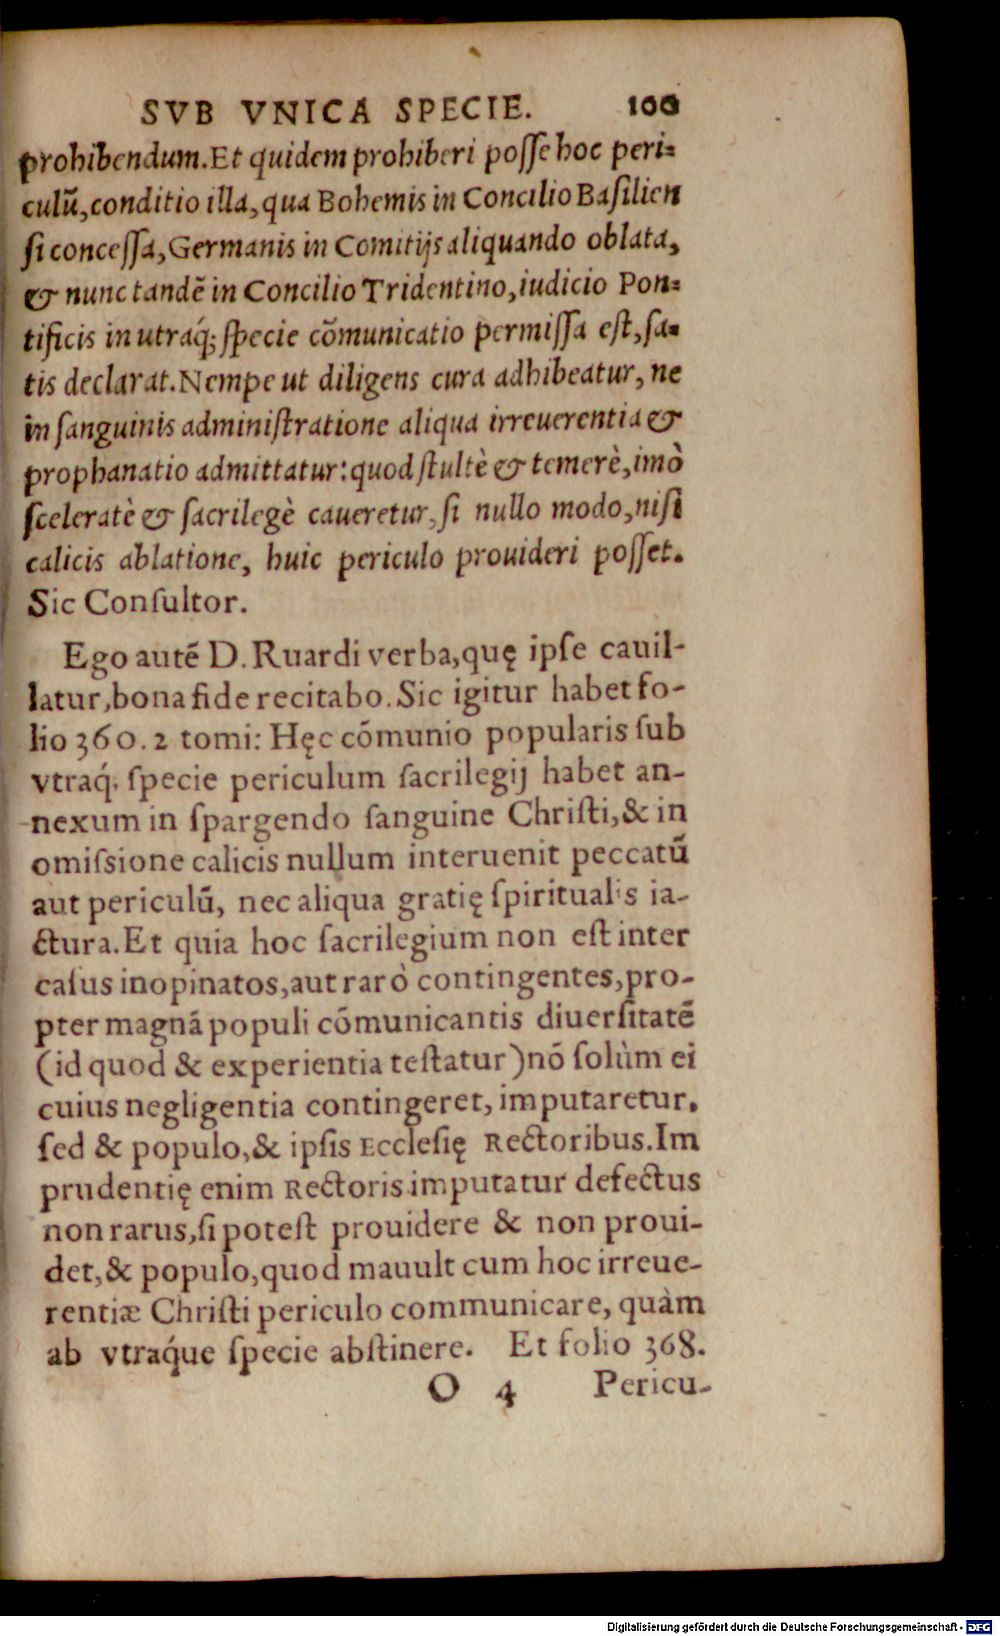 SVB VNICA SPECIE. 100
prohibendum. Et quidem prohiberi posse hoc peri-
culũ, conditio illa, qua Bohemis in Concilio Basilien
si concessa, Germanis in Comitijs aliquando oblata,
& nunc tandẽ in Concilio Tridentino, iudicio Pon-
tificis in utraq́; specie cõmunicatio permissa est, sa-
tis declarat. Nempe ut diligens cura adhibeatur, ne
in sanguinis administratione aliqua irreuerentia &
prophanatio admittatur: quod stultè & temerè, imò
sceleratè & sacrilegè caueretur, si nullo modo, nisi
calicis ablatione, huic periculo prouideri posset.
Sic Consultor.
Ego autẽ D. Ruardi verba, quę ipse cauil-
latur, bona fide recitabo. Sic igitur habet fo-
lio 360. 2 tomi: Hęc cõmunio popularis sub
vtraq́; specie periculum sacrilegij habet an-
nexum in spargendo sanguine Christi, & in
omissione calicis nullum interuenit peccatũ
aut periculũ, nec aliqua gratię spiritualis ia-
ctura. Et quia hoc sacrilegium non est inter
casus inopinatos, aut rarò contingentes, pro-
pter magnã populi cõmunicantis diuersitatẽ
(id quod & experientia testatur) nõ solùm ei
cuius negligentia contingeret, imputaretur,
sed & populo, & ipsis Ecclesię Rectoribus. Im
prudentię enim Rectoris imputatur defectus
non rarus, si potest prouidere & non proui-
det, & populo, quod mauult cum hoc irreue-
rentiæ Christi periculo communicare, quàm
ab vtraq́ue specie abstinere. Et folio 368.
O 4 Pericu-
Digitalisierung gefördert durch die Deutsche Forschungsgemeinschaft - DFG